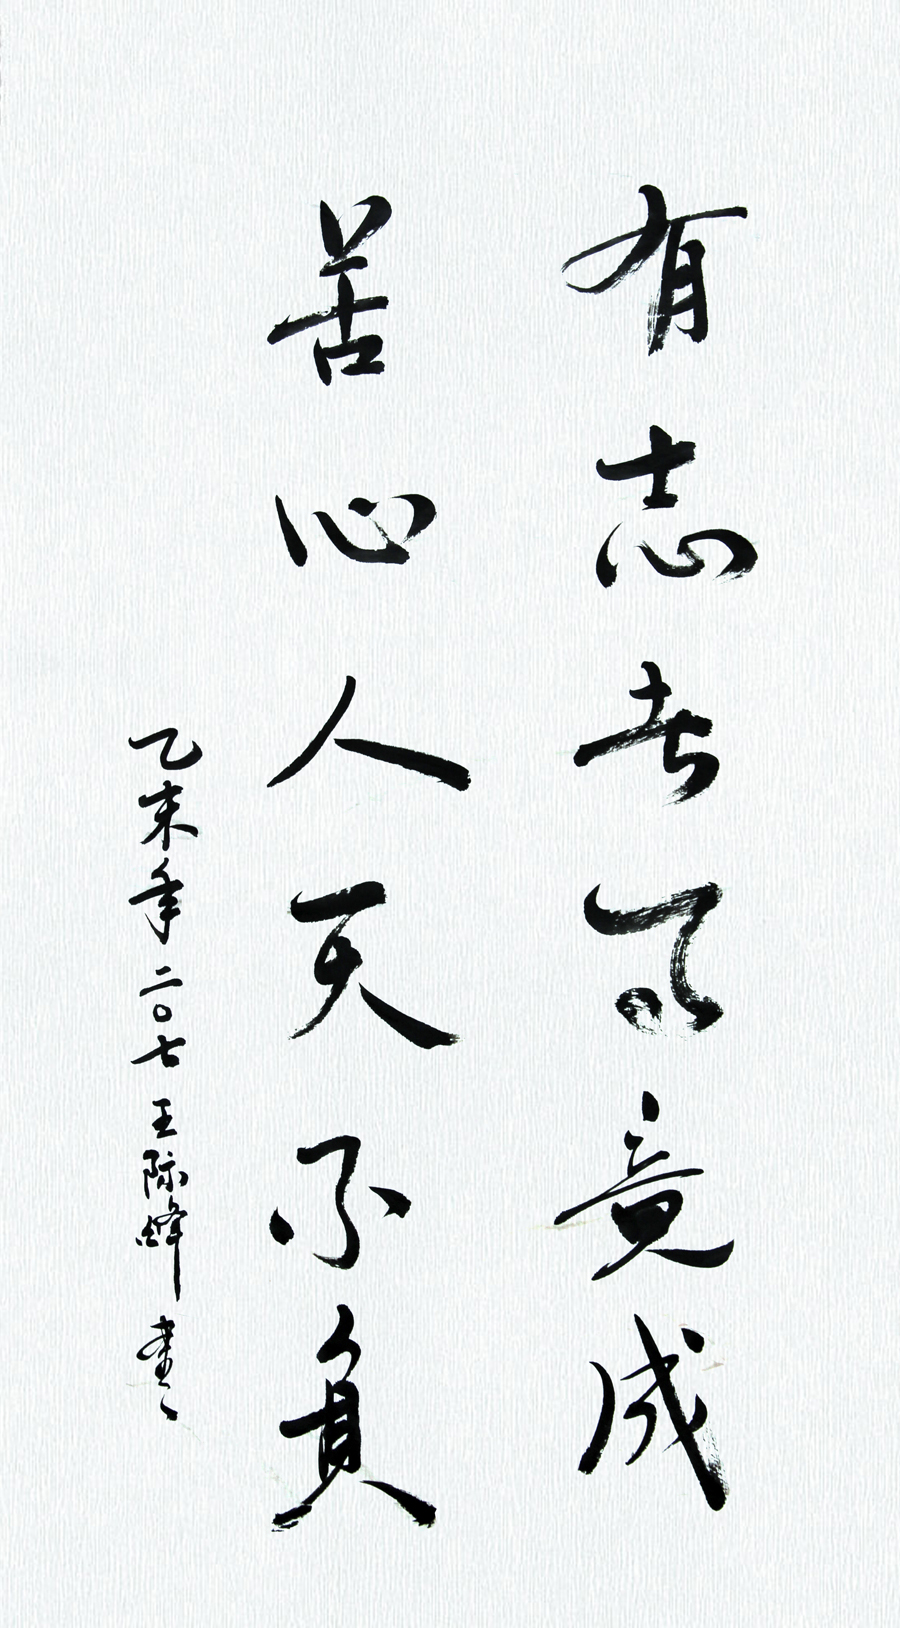 有志者事竟成
苦心人天不负
乙未年二〇七王际峰书